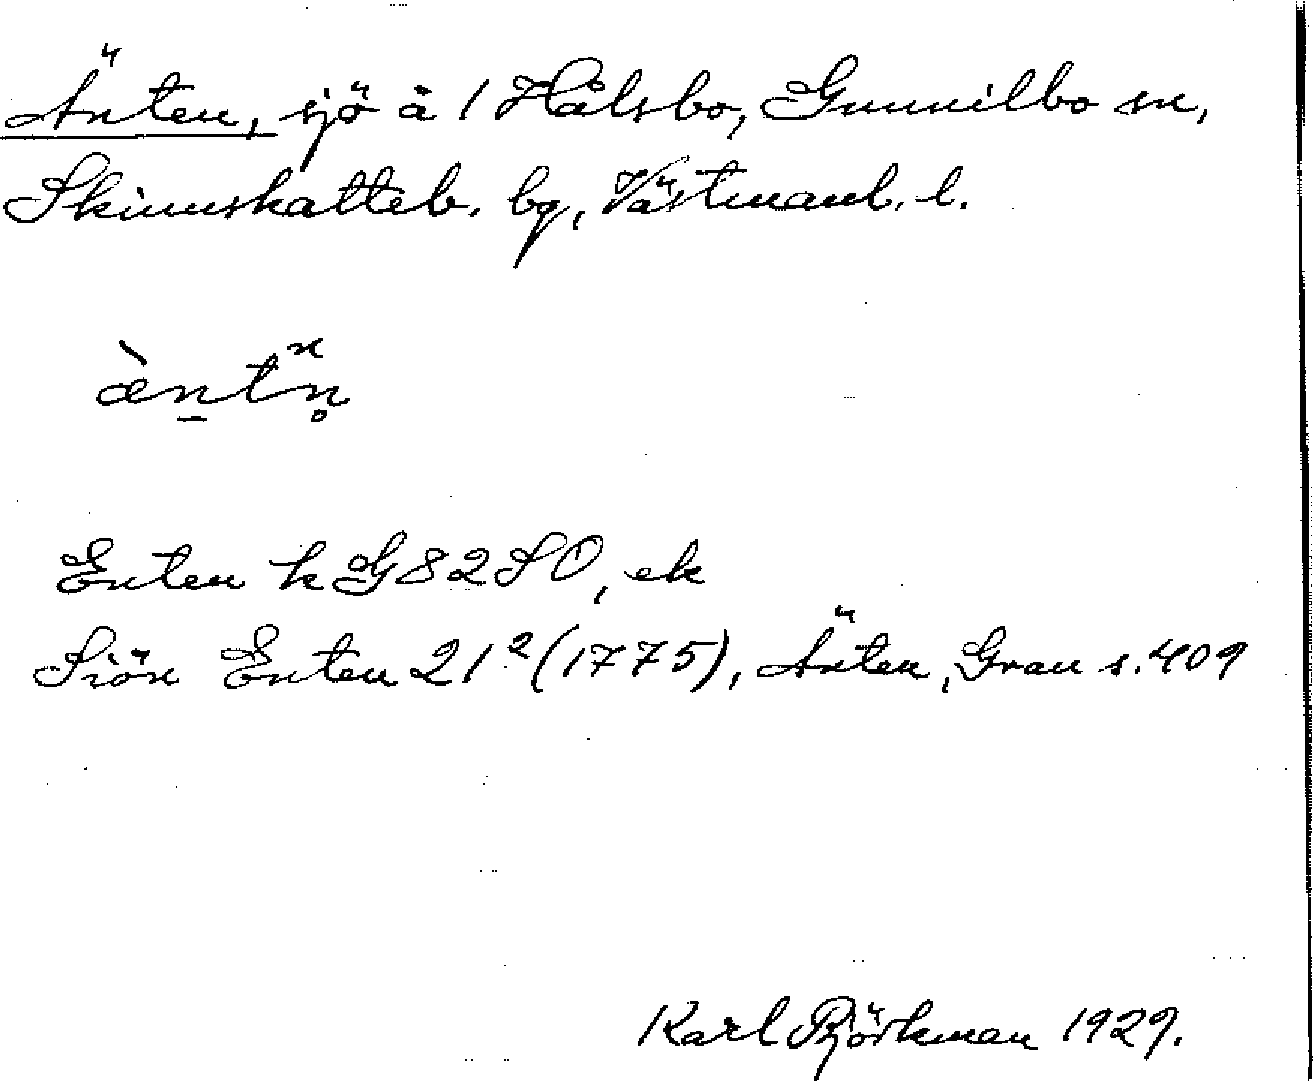 Änten, sjö ä 1 Hålsbo, Gunnilbo sn,
Skinnskatteb. bg, Västmanl. l.
æ̀n̠tn̥
Enten k G82SO, ek
Siön Enten 21² (1775), Änten, Grau s. 409
Karl Björkman 1929.